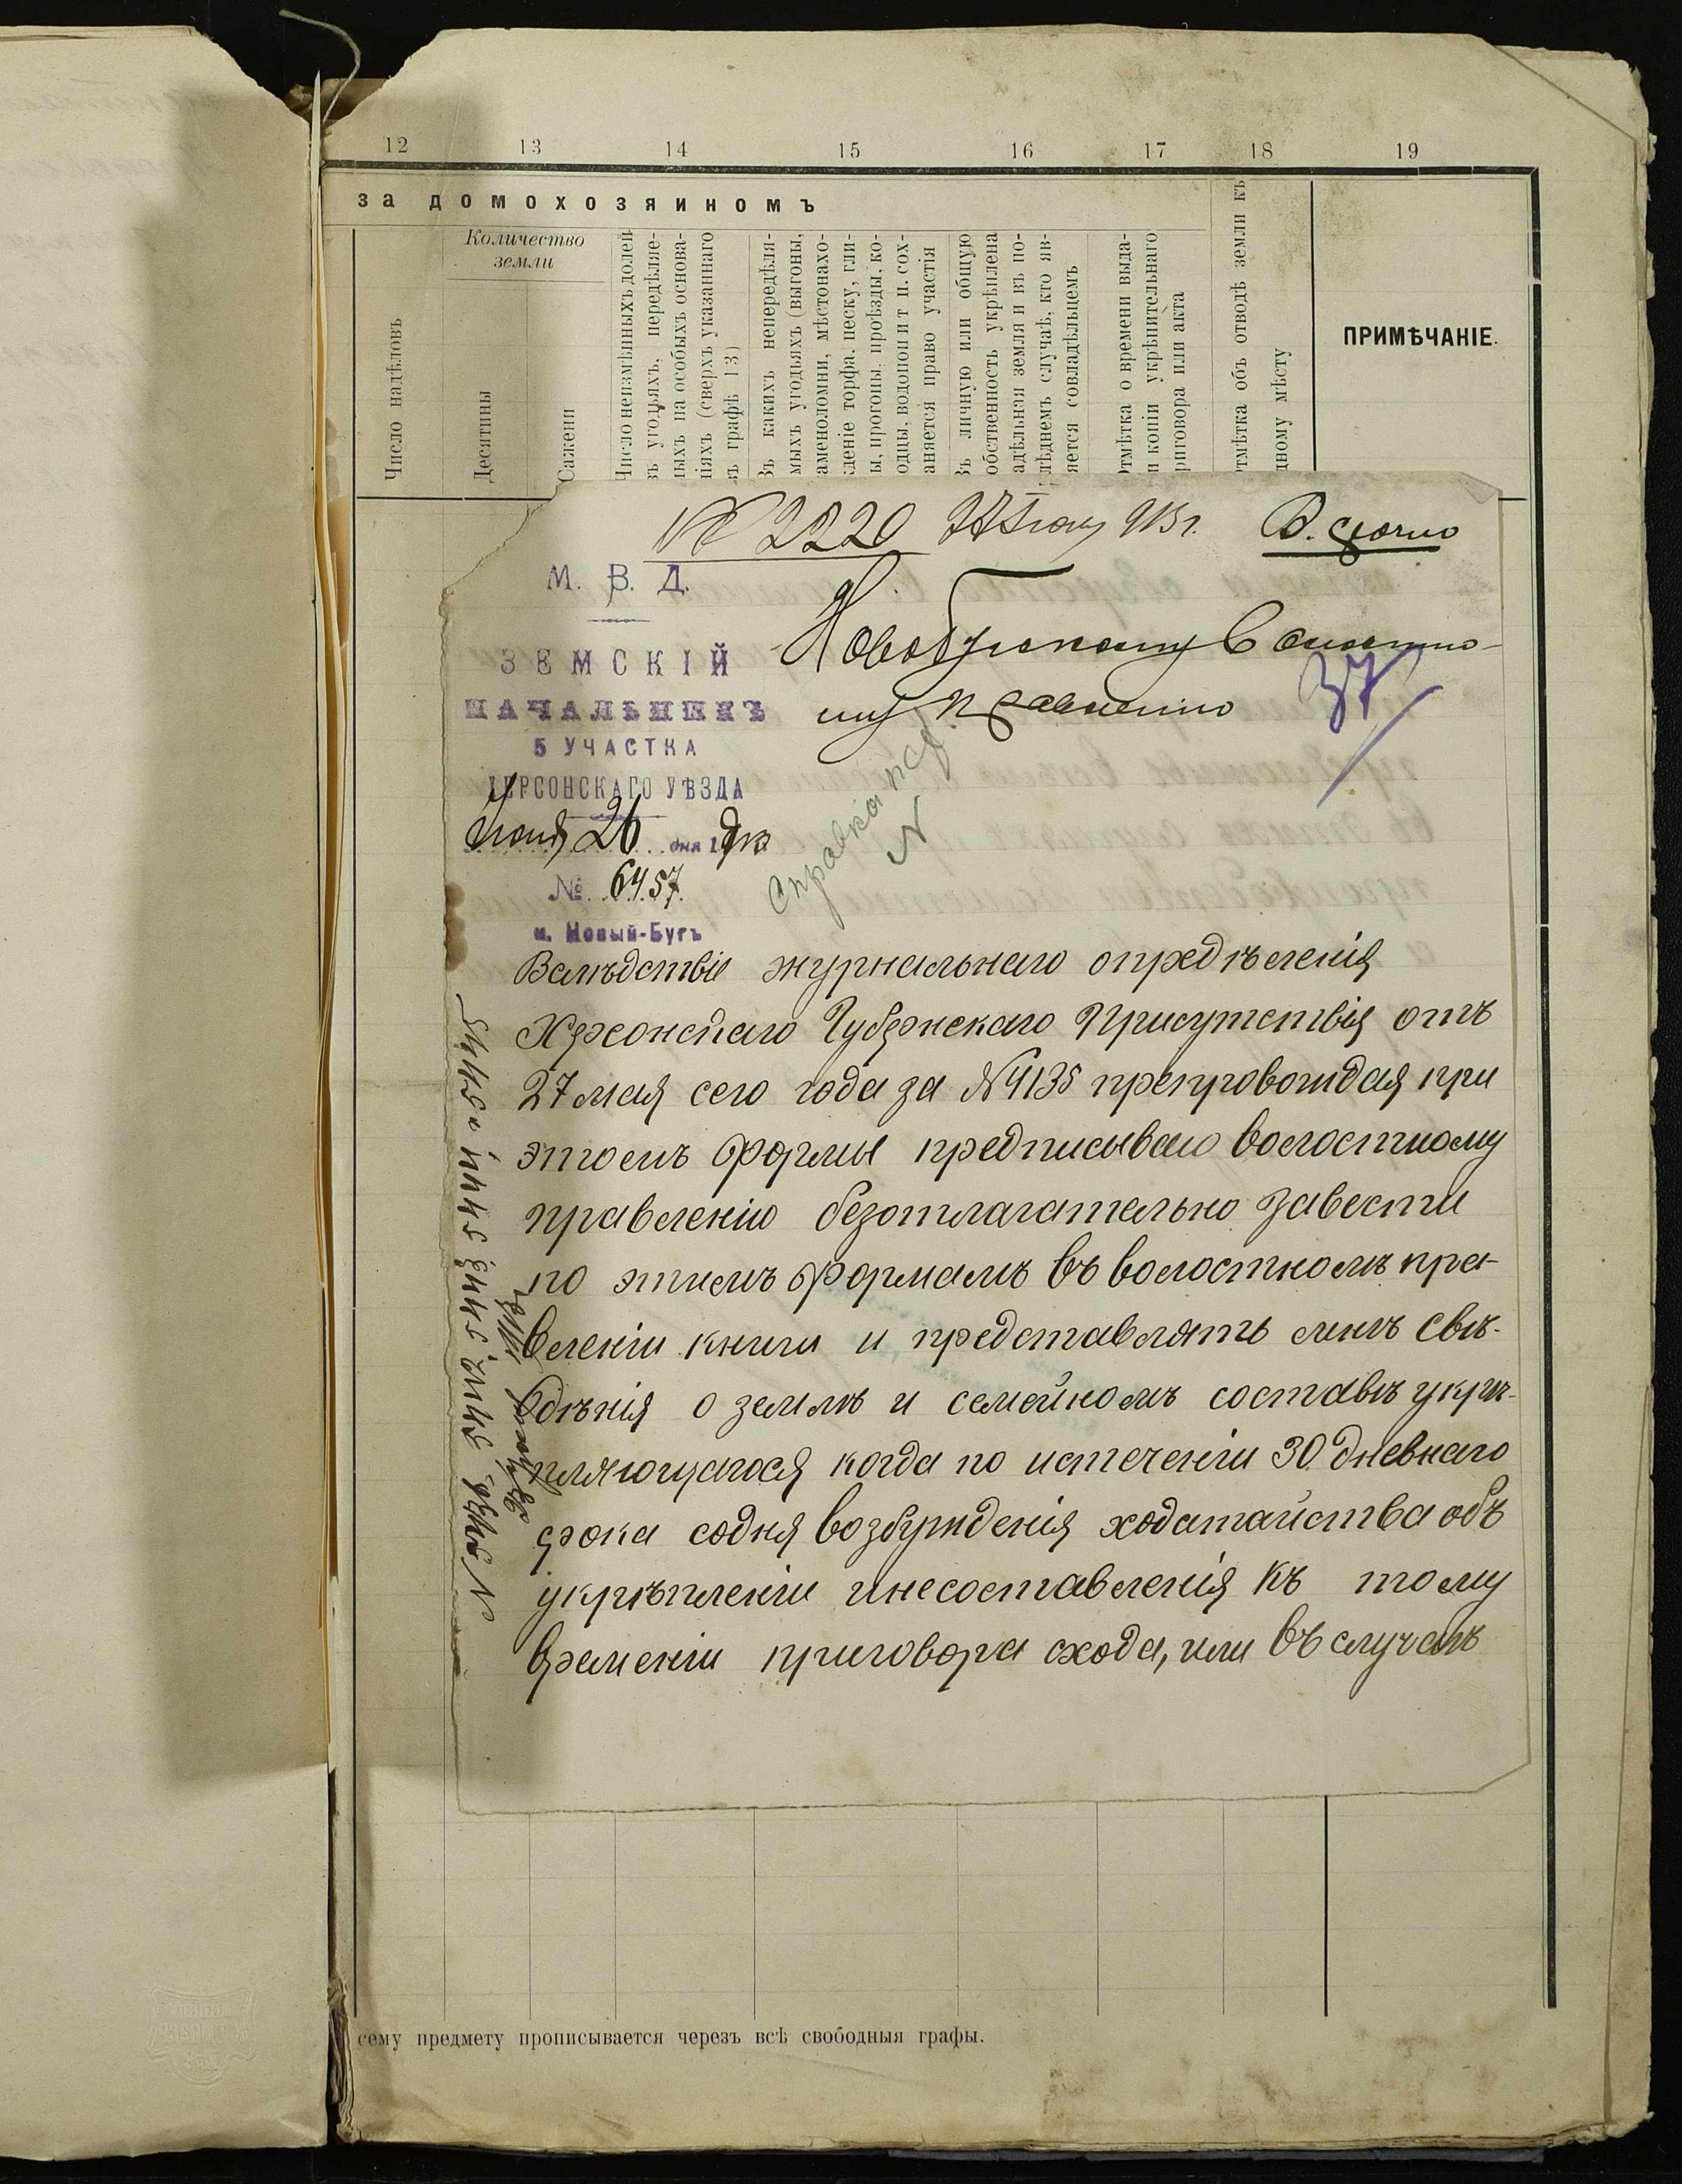 12 13 14 15 16 17 18 19
за домохозяиномъ
Число надѣловъ
Количество
земли
Десятины
Сажени
Число неизмѣнныхъ долей
въ угодьяхъ, передѣляе-
ыхъ на особыхъ основа-
ніяхъ (сверхъ указаннаго
въ графѣ 13)
Въ какихъ непередѣля-
мыхъ угодьяхъ (выгоны,
аменоломни, мѣстонахо-
деніе торфа, песку, гли-
ы, прогоны, проѣзды, ко-
одцы, водопои и т. п. сох-
аняется право участія
Въ личную или общую
обственность укрѣплена
адѣльная земля и въ по-
лѣднемъ случаѣ, кто яв-
яется совладѣльцемъ
Отмѣтка о времени выда-
и копіи укрѣпительнаго
риговора или акта
Отмѣтка объ отводѣ земли къ
дному мѣсту
ПРИМѢЧАНІЕ.
№ 2220 27 Іюня 913 г.
М. В. Д.
ЗЕМСКІЙ
НАЧАЛЬНИКЪ
5 УЧАСТКА
ХЕРСОНСКАГО УѢЗДА
Іюня 26 дня 1913
№ 6457.
м. Новый-Бугъ
Новобугскому Волостно-
му Правленію
37
Справка
Вслѣдствіе журнальнаго опредѣленія
Херсонскаго Губернскаго Присутствія отъ
27 мая сего года за № 4135 препровождая при
этомъ формы предписываю волостному
правленію безотлагательно завести
по этимъ формамъ въ волостномъ пра-
вленіи книги и представлять мнѣ свѣ-
дѣнія о землѣ и семейномъ составѣ укрѣ-
пляющагося когда по истеченіи 30 дневнаго
срока содня возбужденія ходатайства объ
укрѣпленіи инесоставленія къ тому
временіи приговора схода, или въ случаѣ
сему предмету прописывается черезъ всѣ свободныя графы.